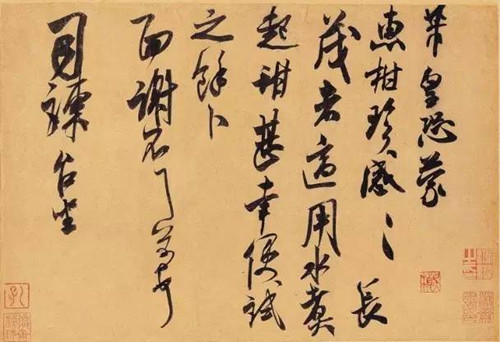 芾皇恐蒙
惠柑珍感〻長
茂者適用水煮
起甜甚幸便試
之餘卜
面謝不
司諫台坐